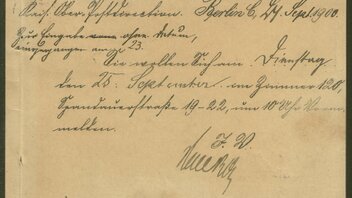 Kais. Ober-Postdirection. Berlin C, 24 Sept. 1900.
Zur Eingabe ohne Datum,
eingegangen am 23.
Sie wollen Sich am Dienstag
den 25. September im Zimmer 120,
Spandauerstraße 19-22, um 10 Uhr Vorm
melden.
I. V.